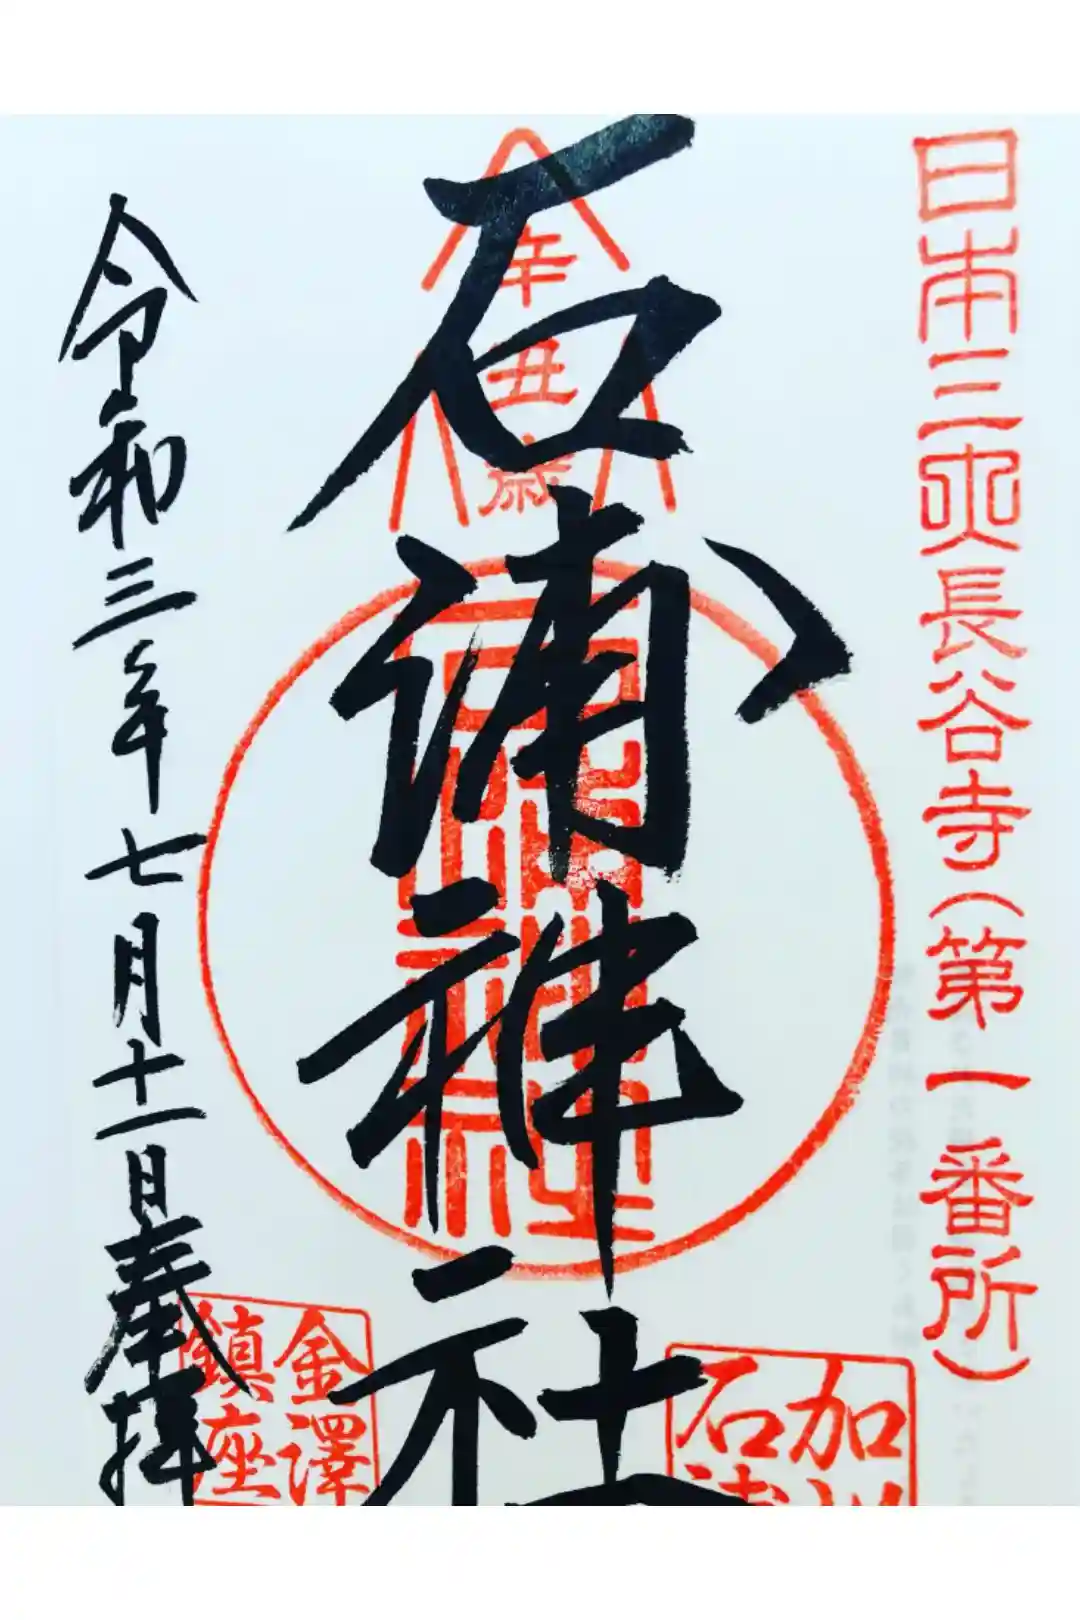 日本三䖏長谷寺(第一番所)
辛丑歳
石浦神社
石浦神社
加
石浦
金澤
鎮座
令和三年七月十一日奉拝